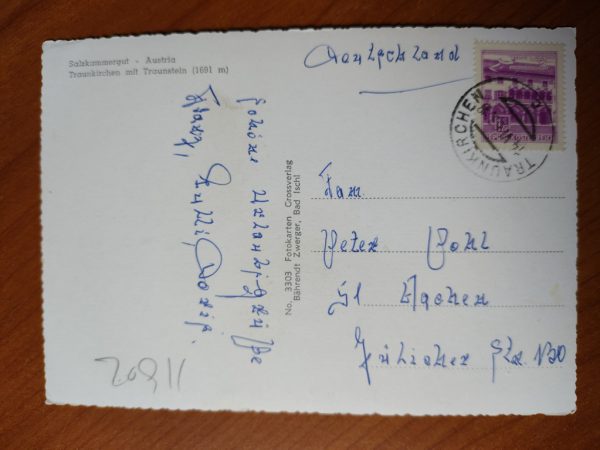 Salzkammergut - Austria
Traunkirchen mit Traunstein (1691 m)
Deutschland
TRAUNKIRCHEN
schöne Urlaubsgrüße
Franz, Lilli, Doris.
No. 3303 Fotokarten Grossverlag
Bährendt Zwerger, Bad Ischl
Fam.
Peter Pohl
51 Aachen
Jülicher Str. 130